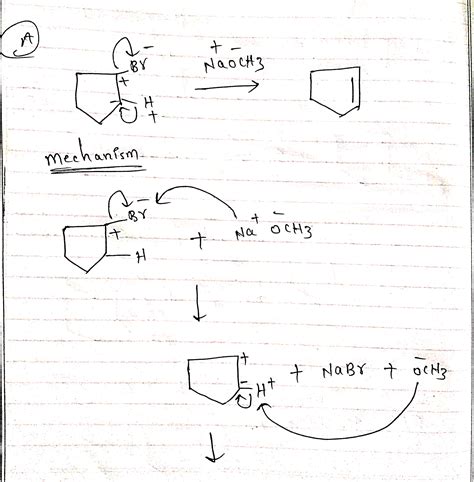 A
Br⁻
+ −
NaOCH3
+
H
+
mechanism
Br⁻
+
H
+ Na⁺ O⁻CH3
+
−H⁺ + NaBr + O⁻CH3